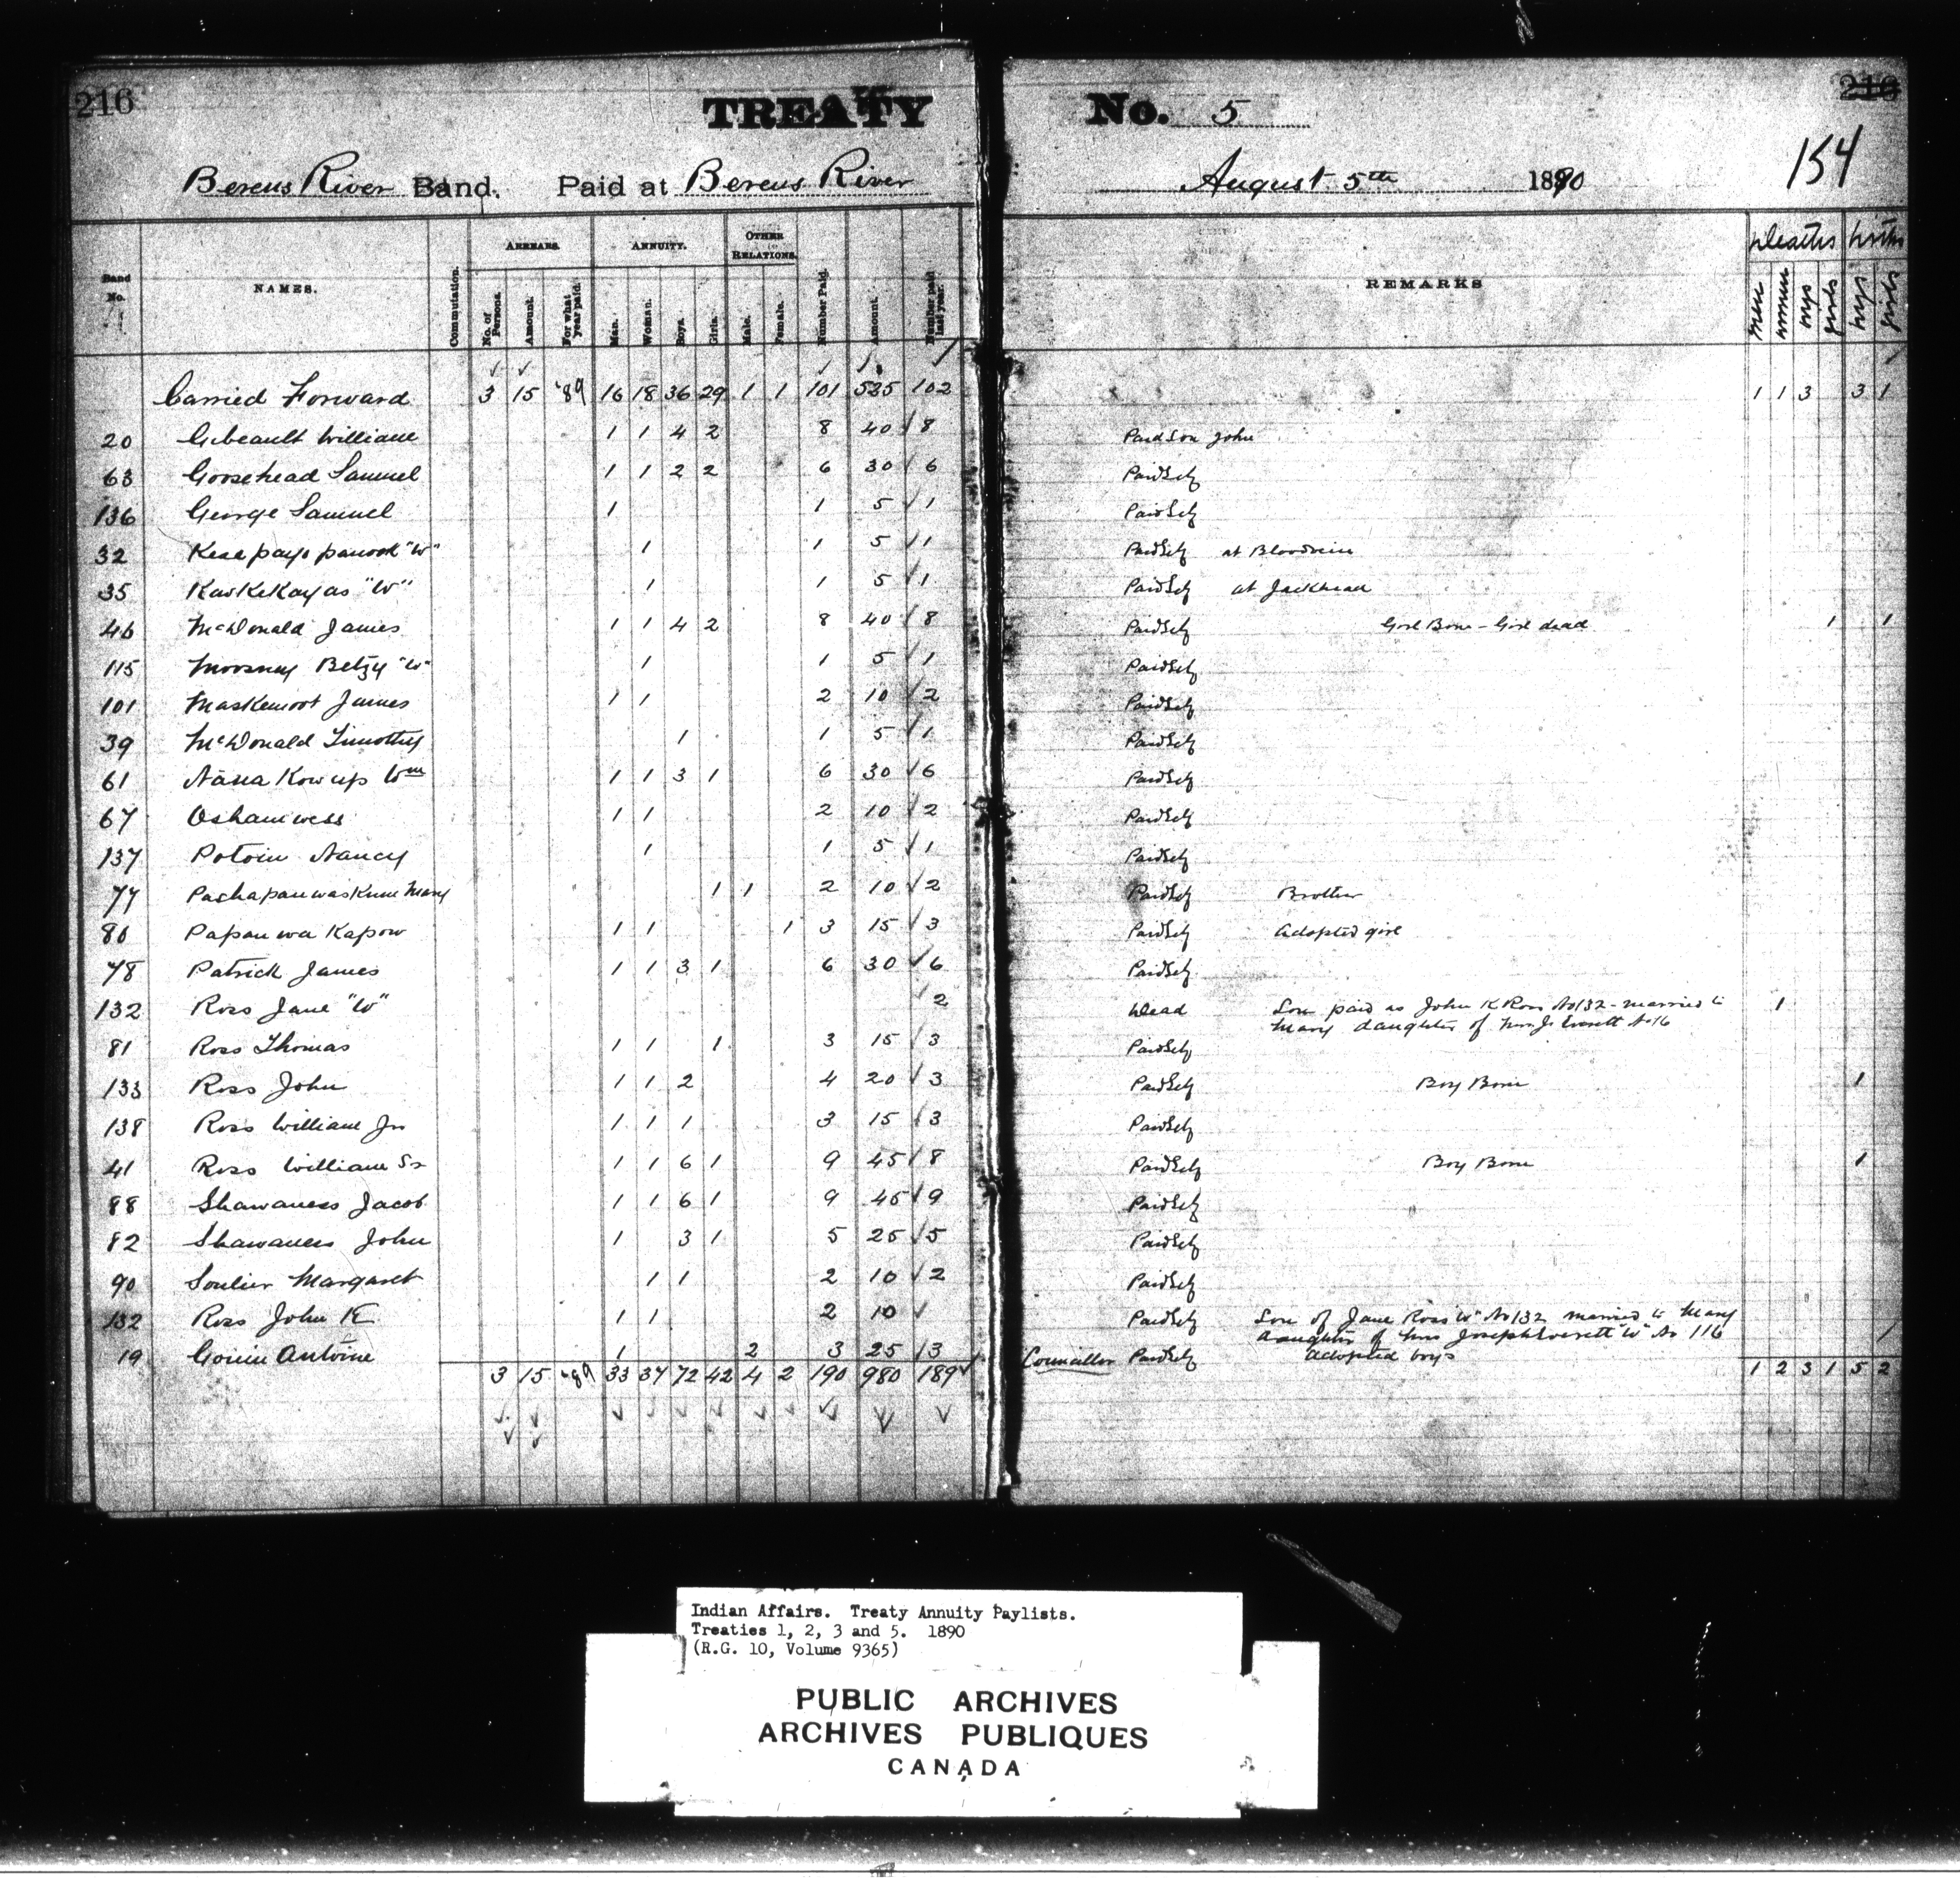 216
TREATY No. 5
216
154
Berens River Band. Paid at Berens River August 5th 1890
Band No. NAMES. Commutation. ARREARS. No. of Persons. Amount. For what year paid. ANNUITY. Man. Woman. Boys. Girls. OTHER RELATIONS. Male. Female. Number Paid. Amount. Number paid last year. REMARKS Deaths men women boys girls births boys girls
Carried Forward 3 15 '89 16 18 36 29 1 1 101 535 102 1 1 3 3 1
20 Gibeault William 1 1 4 2 8 40 8 Paid Son John
63 Goosehead Samuel 1 1 2 2 6 30 6 Paid Self
136 George Samuel 1 1 5 1 Paid Self
32 "W" 1 1 5 1 Paid Self at Bloodvein
35 KasKeKayas "W" 1 1 5 1 Paid Self at Jackhead
46 McDonald James 1 1 4 2 8 40 8 Paid Self Girl Born - Girl dead 1 1
115 Betzy "W" 1 1 5 1 Paid Self
101 Maskemoot James 1 1 2 10 2 Paid Self
39 McDonald Timothy 1 1 5 1 Paid Self
61 Nana Kow up Wm 1 1 3 1 6 30 6 Paid Self
67 Oshamwess 1 1 2 10 2 Paid Self
137 Potvin Nancy 1 1 5 1 Paid Self
77 Mary 1 1 2 10 2 Paid Self Brother
80 Papau wa Kapow 1 1 1 3 15 3 Paid Self Adopted girl
78 Patrick James 1 1 3 1 6 30 6 Paid Self
132 Ross Jane "W" 2 Dead Son paid as John K Ross No 132 - married to 1
Mary daughter of Everett No 16
81 Ross Thomas 1 1 1 3 15 3 Paid Self
133 Ross John 1 1 2 4 20 3 Paid Self Boy Born 1
138 Ross William Jr 1 1 1 3 15 3 Paid Self
41 Ross William Sr 1 1 6 1 9 45 8 Paid Self Boy Born 1
88 Shawaness Jacob 1 1 6 1 9 45 9 Paid Self
82 Shawaness John 1 3 1 5 25 5 Paid Self
90 Soulier Margaret 1 1 2 10 2 Paid Self
132 Ross John K 1 1 2 10 Paid Self Son of Jane Ross "W" No 132 married to Mary
daughter of Mrs Joseph Everett "W" No 116
19 Gouin Antoine 1 2 3 25 3 Councillor Paid Self adopted boys
3 15 '89 33 37 72 42 4 2 190 980 189 1 2 3 1 5 2
Indian Affairs. Treaty Annuity Paylists.
Treaties 1, 2, 3 and 5. 1890
(R.G. 10, Volume 9365)
PUBLIC ARCHIVES
ARCHIVES PUBLIQUES
CANADA